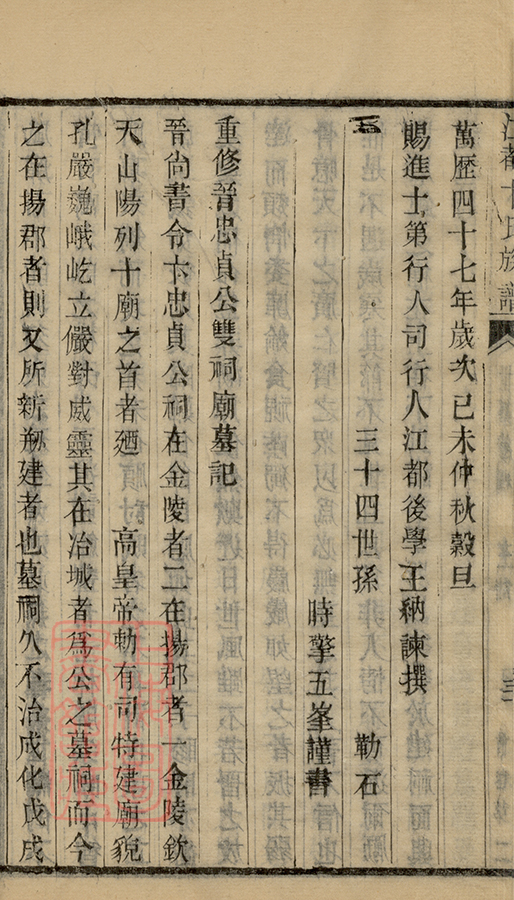 江都卞氏族譜
萬歷四十七年歲次己未仲秋穀旦
賜進士第行人司行人江都後學王納諫撰
三十四世孫 勒石
時擎五峯謹書
重修晉忠貞公雙祠廟墓記
晉尚書令卞忠貞公祠在金陵者二在揚郡者一金陵欽
天山陽列十廟之首者廼 高皇帝勅有司特建廟貌
孔嚴巍峨屹立儼對威靈其在冶城者為公之墓祠而今
之在揚郡者則又所新剏建者也墓祠久不治成化戊戌